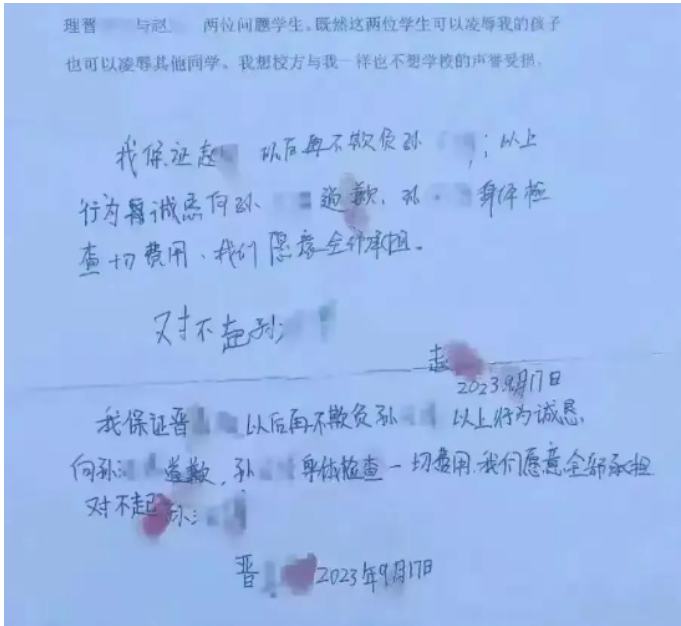 理晋 与赵 两位问题学生。既然这两位学生可以凌辱我的孩子
也可以凌辱其他同学。我想校方与我一样也不想学校的声誉受损.
我保证赵 以后再不欺负孙 ; 以上
行为 诚恳向孙 道歉, 孙 身体检
查一切费用、我们愿意全部承担。
对不起孙
赵
2023.9月17日
我保证晋 以后再不欺负孙 以上行为诚恳
向孙 道歉, 孙 身体检查一切费用.我们愿意全部承担
对不起 孙
晋 2023年9月17日